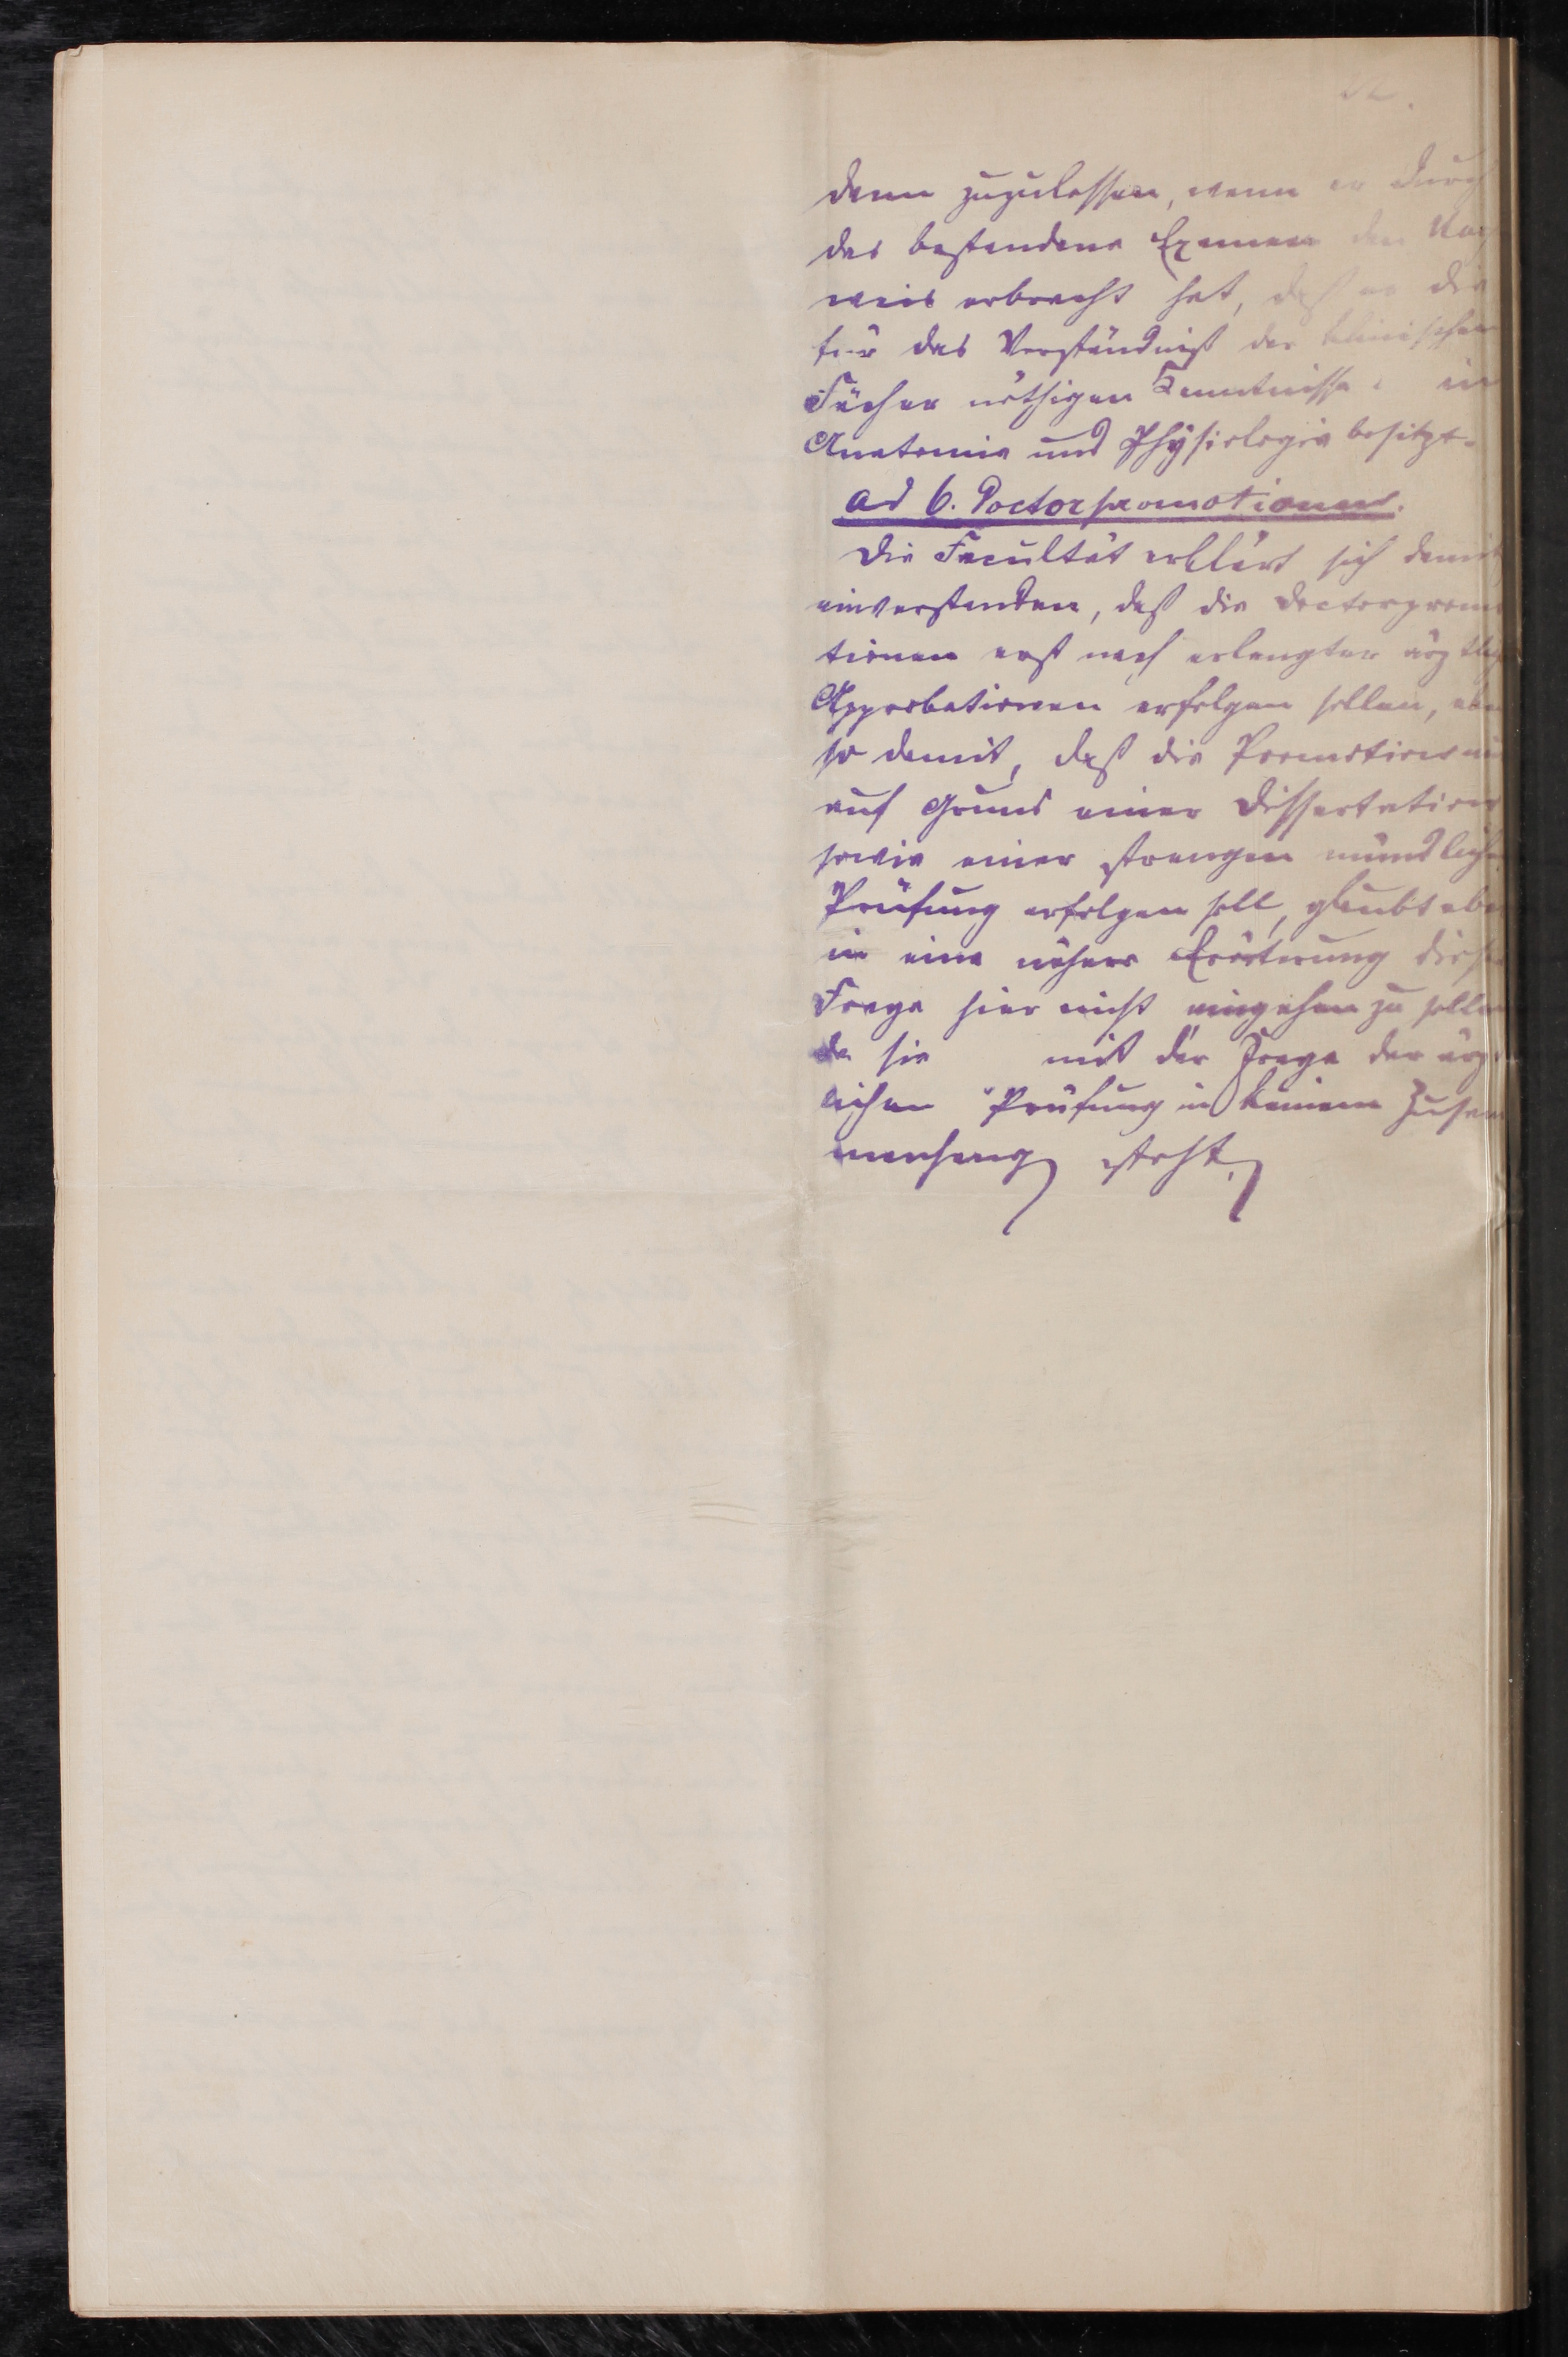 dann zuzulassen, wenn er durch
das bestandene Examen den Nach
weis erbracht hat, daß er die
für das Verständniß der klinischen
Fächer nöthigen Kenntnisse in
Anatomie und Physiologie besitzt.
ad 6. Doctorpromotionen.
Die Facultät erklärt sich damit
einverstanden, daß die Doctorpromo
tionen erst nach erlangter ärztlich
Approbationen erfolgen sollen, eben
so damit, daß die Promotion nur
auf Grund einer Dissertation
sowie einer strengen mündlichen
Prüfung erfolgen soll, glaubt aber
in eine nähere Erörterung dieser
Frage hier nicht eingehen zu sollen
da sie mit der Frage der ärzt
lichen Prüfung in keinem Zusam
menhang steht.